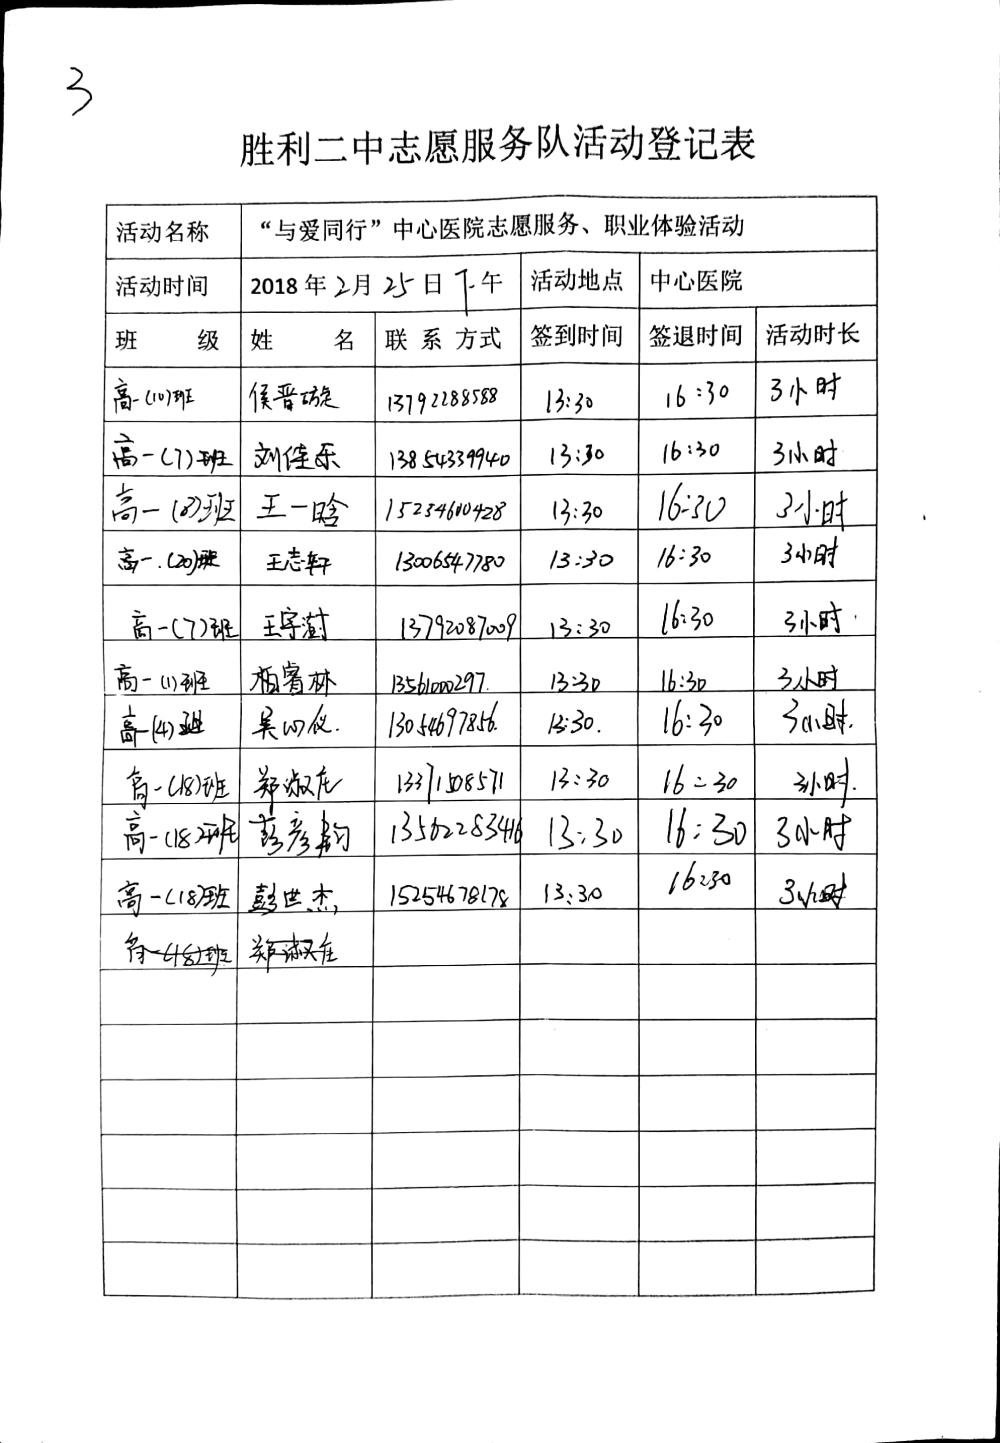 3
胜利二中志愿服务队活动登记表
活动名称 “与爱同行”中心医院志愿服务、职业体验活动
活动时间 2018年2月25日下午 活动地点 中心医院
班 级 姓 名 联系方式 签到时间 签退时间 活动时长
高一(10)班 侯晋璇 13792288588 13:30 16:30 3小时
高一(7)班 刘佳乐 13854339940 13:30 16:30 3小时
高一(8)班 王一晗 15234600428 13:30 16:30 3小时
高一.(20)班 王志轩 13006547780 13:30 16:30 3小时
高一(7)班 王宇澍 13792087009 13:30 16:30 3小时
高一(1)班 柏睿林 13561000297. 13:30 16:30 3小时
高一(4)班 吴 仪. 13054697856. 13:30. 16:30 3小时.
高一(18)班 郑淑 13371508571 13:30 16:30 3小时.
高一(18)班 彭彦钧 13562283416 13:30 16:30 3小时
高一(18)班 彭世杰 15254678178 13:30 16:30 3小时
(18)班 郑淑